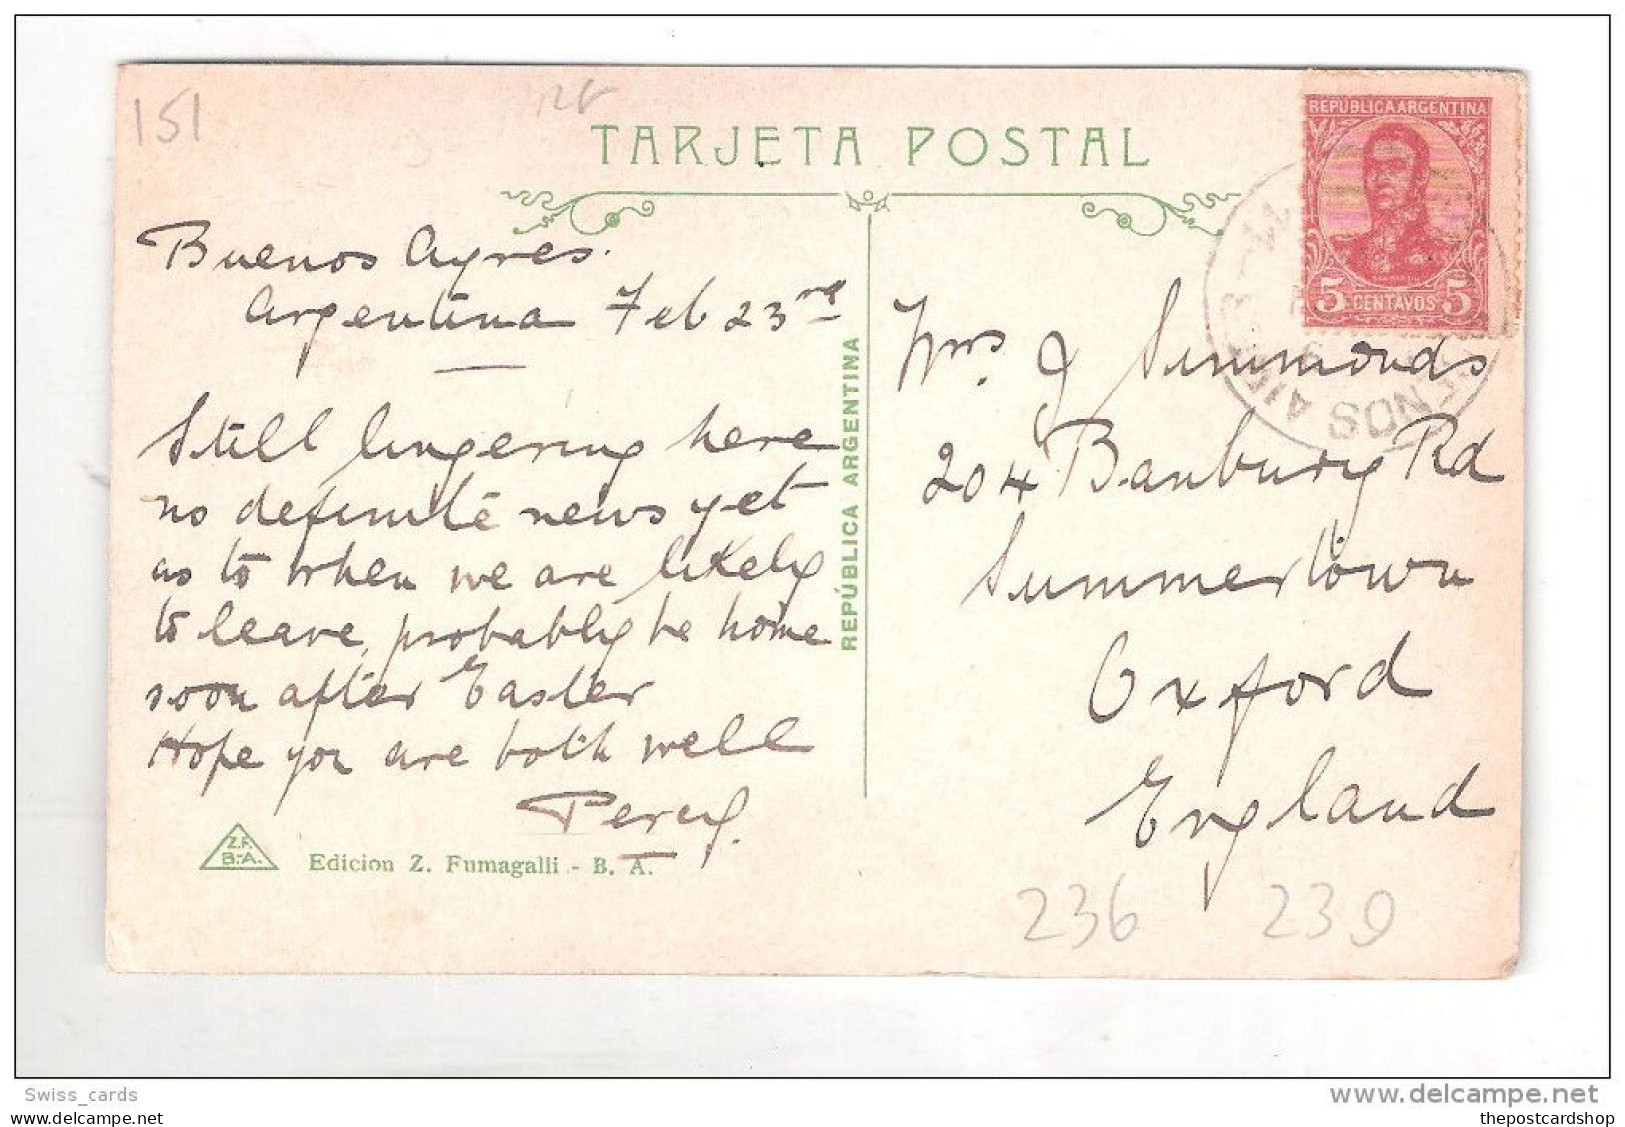 151
TARJETA POSTAL
REPÚBLICA ARGENTINA
5 CENTAVOS 5
BUENOS AIRES
Buenos Ayres.
Argentina Feb 23rd
Still lingering here
no definite news yet
as to when we are likely
to leave, probably be home
soon after Easter
Hope you are both well
Percy.
Z.F.
B.-A.
Edicion Z. Fumagalli - B. A.
REPÚBLICA ARGENTINA
Mrs J Simmonds
204 Banbury Rd
Summertown
Oxford
England
236 239
Swiss_cards
delcampe.net
thepostcardshop